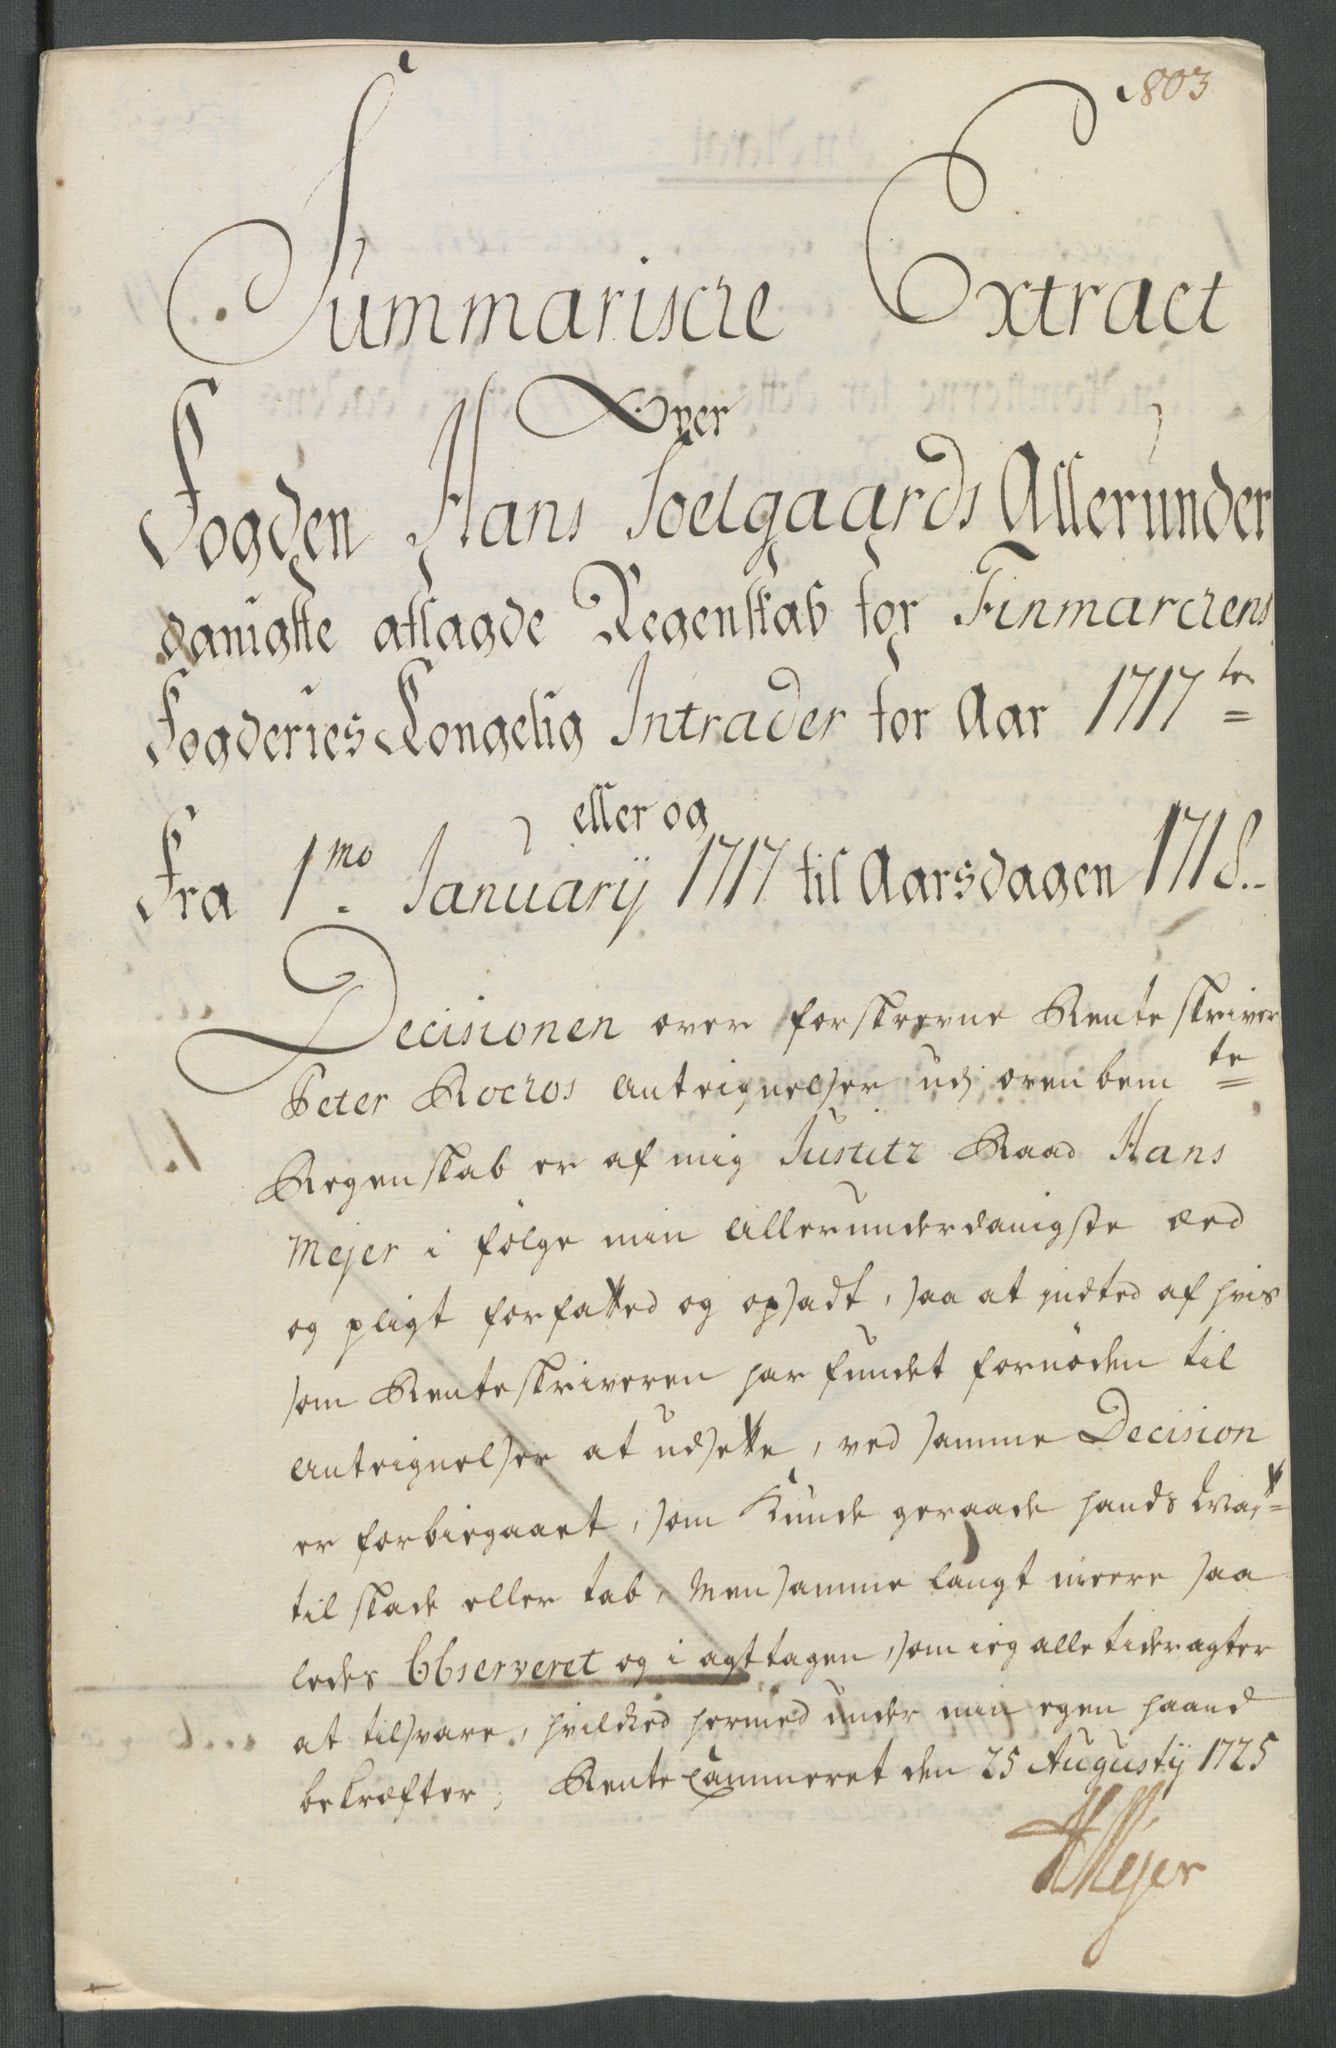 1803
Summarische Extract
Over
Fogden Hans Soelgaards Allerunder
danigste aflagde Regenskab for Finmarchens
Fogderies Kongelig Intrader for Aar 1717 te
eller og
Fra 1mo January 1717 til Aarsdagen 1718..
Decisionen over forskrevne Renteskriver
Peter Kochos Antegnelser, udj ovenbem te
Regenskab er af mig Justitz Raad Hans
Mejer i følge min Allerunderdanigste æed
og pligt forfatted og opsadt, saa at indted af hvis
som Renteskriveren har fundet fornøden til
Antegnelser at udsette, ved samme Decision
er forbiegaaet, som Kunde geraade hands May tt
til skade eller tab, Men samme langt meere saa
ledes Observeret og i agttagen, som ieg alle tider agter
at tilsvare, hvilched hermed under min egen haand
bekræfter; Rente Cammeret den 25 Augustij 1725
HMejer